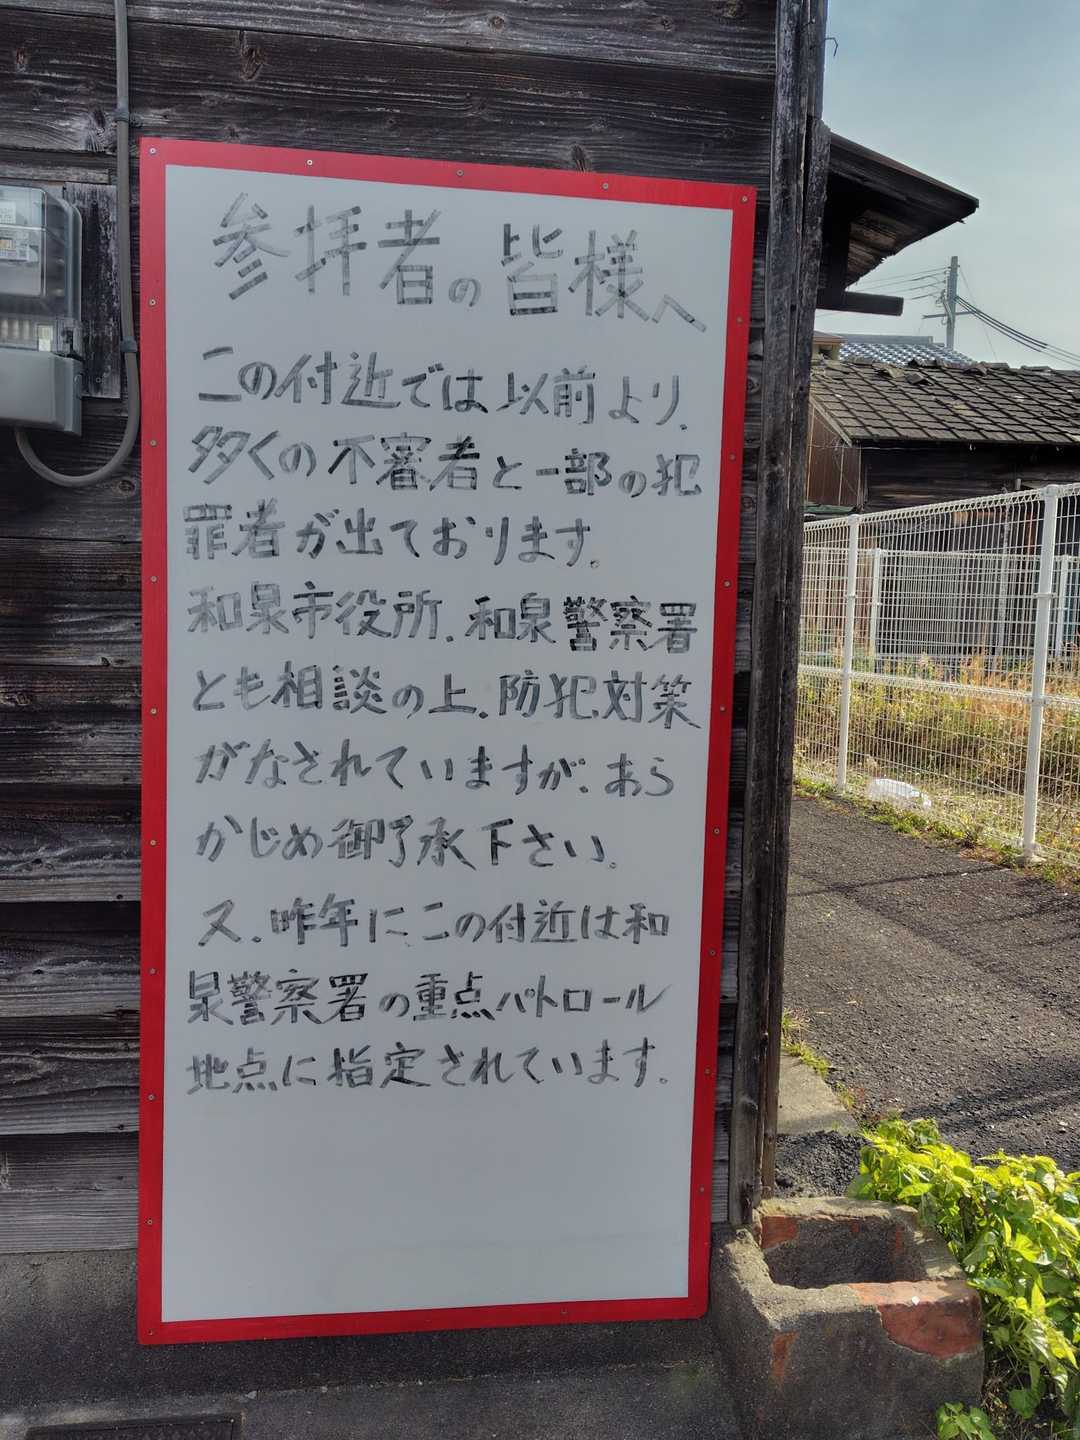 参拝者の皆様へ
この付近では以前より、
多くの不審者と一部の犯
罪者が出ております。
和泉市役所、和泉警察署
とも相談の上、防犯対策
がなされていますが、あら
かじめ御了承下さい。
又、昨年に、この付近は和
泉警察署の重点パトロール
地点に指定されています。